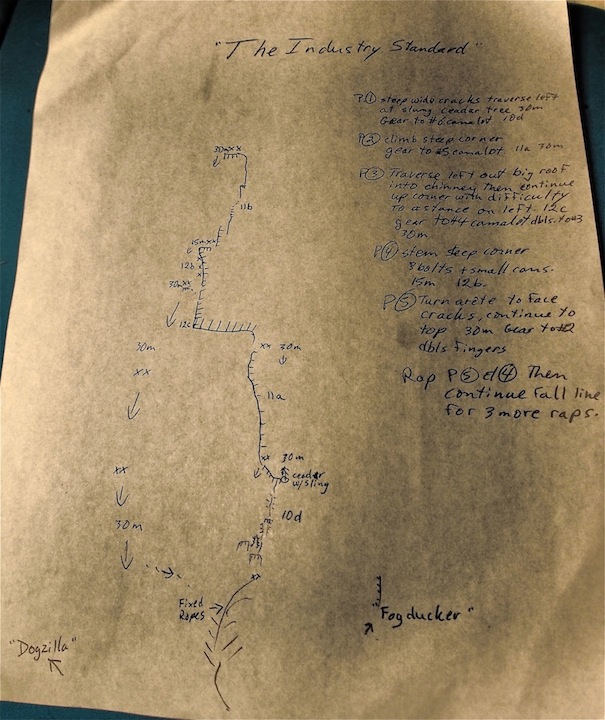 "The Industry Standard"
P① steep wide cracks traverse left
at slung Ceadar tree 30m
Gear to #6 camalot 10d
P② climb steep corner
gear to #5 camalot 11a 30m
P③ Traverse left out big roof
into chimney then continue
up corner with difficulty
to a stance on left. 12c
gear to #4 camalot dbls. to #3
30m
P④ stem steep corner
3 bolts + small cams.
15m 12b.
P⑤ Turn arête to face
cracks, continue to
top 30m Gear to #2
dbls fingers
Rap P⑤ & ④ Then
continue Fall line
for 3 more raps.
30m xx
11b
15m xx
12b
30m xx
12c
30m
xx
xx 30m
11a
xx 30m
Ceadar
w/sling
xx
10d
30m
xx
Fixed
Ropes
"Fogducker"
"Dogzilla"